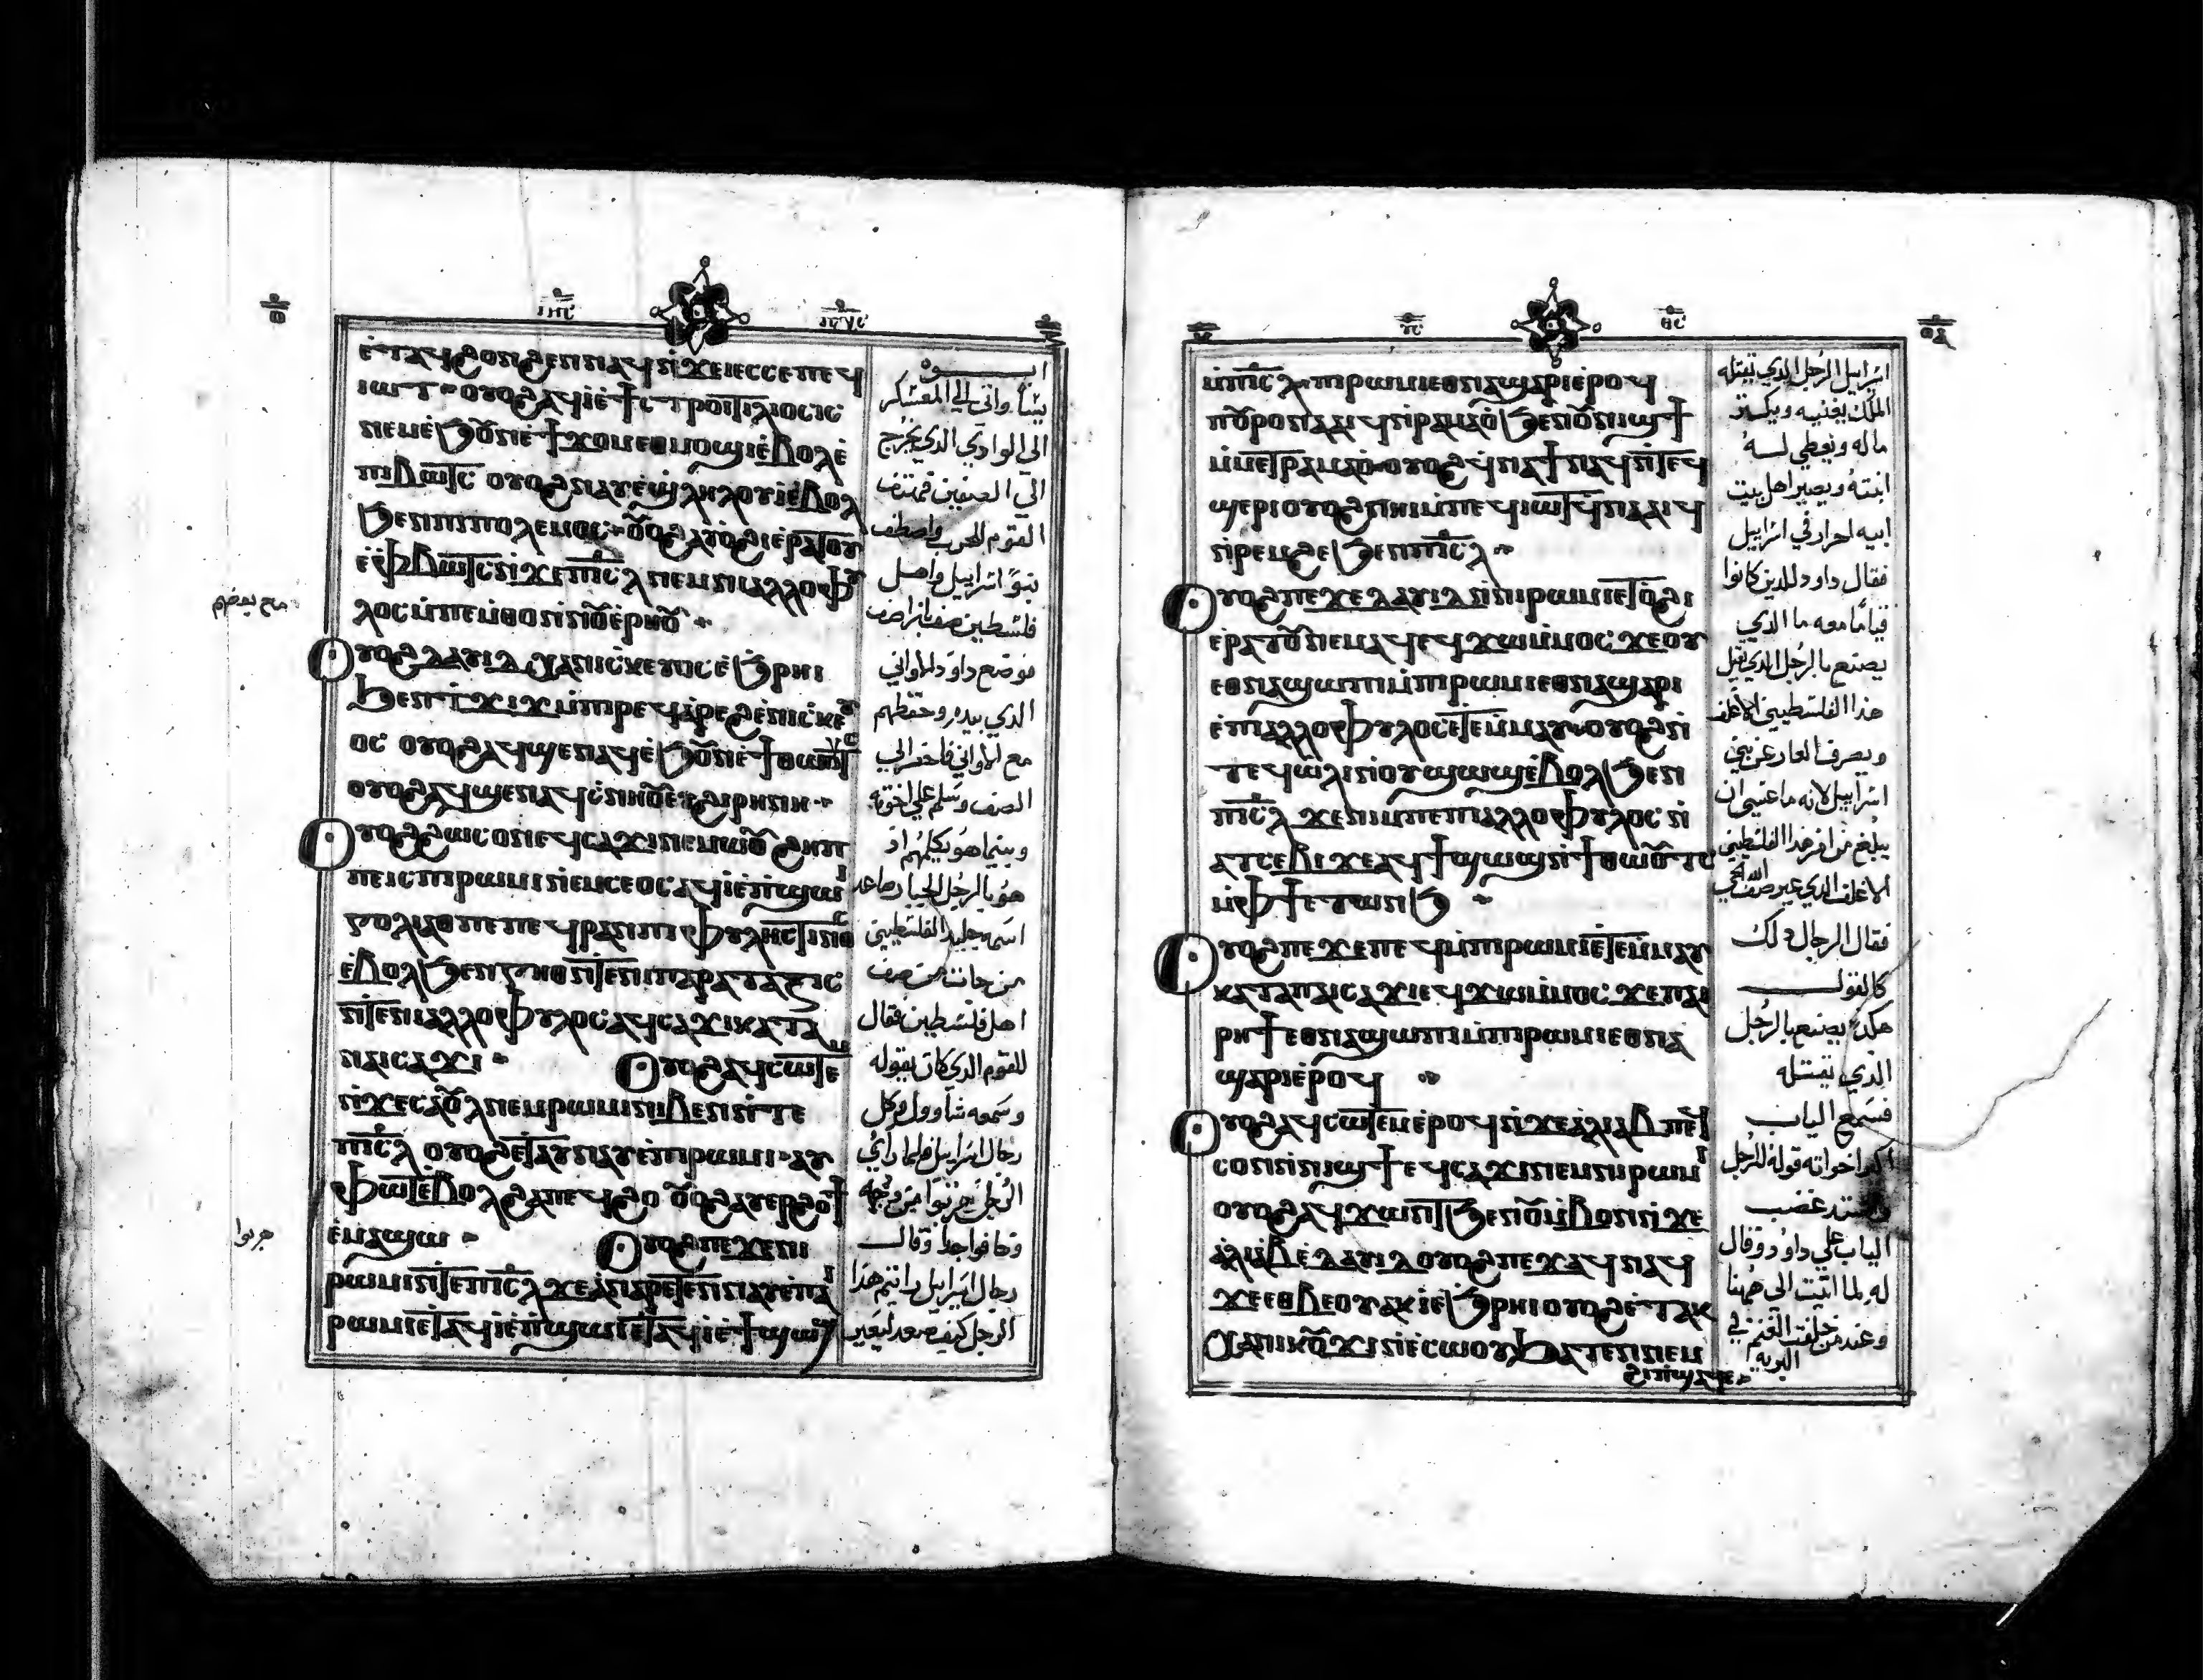 ⲉⲧⲁϥϩⲟⲛϩⲉⲛ ⲛⲁϥ ⲛϫⲉ ⲓⲉⲥⲥⲉ ⲡⲉϥ
ⲓⲱⲧ ⲟⲩⲟϩ ⲁϥⲓ ⲉϯⲥⲧⲣⲟⲅⲅⲓⲗⲱⲥⲓⲥ
ⲛⲉⲙ ϯϫⲟⲙ ⲉⲑⲙⲟϣⲓ ⲉⲃⲟⲗ ⲉ
ⲡⲓⲃⲱⲧⲥ ⲟⲩⲟϩ ⲛⲁⲩⲉϣⲗⲏⲗⲟⲩⲓ ⲉⲃⲟⲗ
ϧⲉⲛ ⲡⲓⲡⲟⲗⲉⲙⲟⲥ ⲟⲩⲟϩ ⲁⲩⲟϩⲓ ⲉⲣⲁⲧⲟⲩ
ⲉⲫⲃⲱⲧⲥ ⲛϫⲉ ⲡⲓⲥⲗ ⲛⲉⲙ ⲛⲓⲁⲗⲗⲟⲫⲩ
ⲗⲟⲥ ⲙⲡⲉⲙⲑⲟ ⲛⲛⲟⲩⲉⲣⲏⲟⲩ
ⲟⲩⲟϩ ⲇⲁⲩⲓⲇ ⲭⲁ ⲛⲓⲥⲕⲉⲩⲟⲥ ⲉϧⲣⲏⲓ
ϧⲉⲛ ⲧϫⲓϫ ⲙⲡⲓⲣⲉϥⲁⲣⲉϩ ⲉⲛⲓⲥⲕⲉⲩ
ⲟⲥ ⲟⲩⲟϩ ⲁϥϣⲉⲛⲁϥ ⲉϧⲟⲩⲛ ⲉϯⲑⲱⲧⲥ
ⲟⲩⲟϩ ⲁϥϣⲉⲛ ⲛⲉϥⲥⲛⲏⲟⲩ ⲉⲧϩⲓⲣⲏⲛⲏ
ⲟⲩⲟϩ ϩⲱⲥⲟⲛ ⲉϥⲥⲁϫⲓ ⲛⲉⲙⲱⲟⲩ ϩⲏⲡ
ⲡⲉ ⲓⲥ ⲡⲓⲣⲱⲙⲓ ⲛⲉⲙⲥⲉⲟⲥ ⲁϥⲓ ⲉⲡϣⲱⲓ
ⲅⲟⲗⲓⲁⲑ ⲡⲉ ⲡⲉϥⲣⲁⲛ ⲡⲓⲫⲩⲗⲏⲥⲧⲓⲛⲟⲥ
ⲉⲃⲟⲗ ϧⲉⲛ ⲅⲏⲑ ⲛⲧⲉ ⲛⲓⲡⲁⲣⲁⲧⲁⲝⲓⲥ
ⲛⲧⲉ ⲛⲓⲁⲗⲗⲟⲫⲩⲗⲟⲥ ⲁϥⲥⲁϫⲓ ⲕⲁⲧⲁ
ⲛⲁⲓⲥⲁϫⲓ ⲟⲩⲟϩ ⲁϥⲥⲱⲧⲉⲙ
ⲛϫⲉ ⲥⲁⲟⲩⲗ ⲛⲉⲙ ⲣⲱⲙⲓ ⲛⲓⲃⲉⲛ ⲛⲧⲉ
ⲡⲓⲥⲗ ⲟⲩⲟϩ ⲉⲧⲁⲩⲛⲁⲩ ⲉⲡⲓⲣⲱⲙⲓ ⲁⲩ
ⲫⲱⲧ ⲉⲃⲟⲗ ϩⲁ ⲡⲉϥϩⲟ ⲟⲩⲟϩ ⲁⲩⲉⲣϩⲟϯ
ⲉⲙⲁϣⲱ ⲟⲩⲟϩ ⲡⲉϫⲉ ⲛⲓ
ⲣⲱⲙⲓ ⲛⲧⲉ ⲡⲓⲥⲗ ϫⲉ ⲁⲛ ⲁⲣⲉⲧⲉⲛⲛⲁⲩ ⲉⲡⲁⲓ
ⲣⲱⲙⲓ ⲉⲧⲁϥⲓ ⲉⲡϣⲱⲓ ⲉⲧⲁϥⲓ ⲉϯϣⲱϣ
ابوه
يشا واتى الى المعسكر
الى الوادي الذي يخرج
الى الصفين
القوم للحرب واصطف
بنو اسراييل واهل
فلسطين صفا بازا صف
فوضع داود الاواني
الذي بيده وحفظهم
مع الاواني فاحضر الى
الصف وسلم على اخوته
وبينما هو يكلمهم اذ
هوذا الرجل الجبار صاعد
اسمه جليد الفلسطيني
من جات من صف
اهل فلسطين فقال
للقوم الذي كان يقوله
وسمعه شاوول وكل
رجال اسراييل فلما راي
الرجل هربوا من وجهه
وخافوا جدا وقال
رجال اسراييل رايتم هذا
الرجل كيف صعد ليعير
مع بعضهم
هربوا
ⲙⲡⲓⲥⲗ ⲡⲓⲣⲱⲙⲓ ⲉⲑⲛⲁϣⲁⲣⲓ ⲉⲣⲟϥ
ⲡⲟⲩⲣⲟ ⲛⲁⲁⲓϥ ⲛⲣⲁⲙⲁⲟ ϧⲉⲛ ⲟⲩⲛⲓϣϯ
ⲙⲙⲉⲧⲣⲁⲙⲁⲟ ⲟⲩⲟϩ ϥⲛⲁϯ ⲛⲁϥ ⲛⲧⲉϥ
ϣⲉⲣⲓ ⲟⲩⲟϩ ⲡⲏⲓ ⲙⲡⲉϥⲓⲱⲧ ϥⲛⲁⲁⲓϥ
ⲛⲣⲉⲙϩⲉ ϧⲉⲛ ⲡⲓⲥⲗ
ⲟⲩⲟϩ ⲡⲉϫⲉ ⲇⲁⲩⲓⲇ ⲛⲛⲓⲣⲱⲙⲓ ⲉⲧⲟϩⲓ
ⲉⲣⲁⲧⲟⲩ ⲛⲉⲙⲁϥ ⲉϥϫⲱ ⲙⲙⲟⲥ ϫⲉ ⲟⲩ
ⲉⲑⲛⲁϣⲱⲡⲓ ⲙⲡⲓⲣⲱⲙⲓ ⲉⲑⲛⲁϣⲁⲣⲓ
ⲉⲡⲓⲁⲗⲗⲟⲫⲩⲗⲟⲥ ⲉⲧⲉⲙⲙⲁⲩ ⲟⲩⲟϩ ⲛ
ⲧⲉϥⲱⲗⲓ ⲛⲟⲩϣⲱϣ ⲉⲃⲟⲗ ϧⲉⲛ
ⲡⲓⲥⲗ ϫⲉ ⲛⲓⲙ ⲡⲉ ⲡⲓⲁⲗⲗⲟⲫⲩⲗⲟⲥ ⲛ
ⲁⲧⲥⲉⲃⲓ ϫⲉ ⲁϥϯϣⲱϣ ⲛϯⲑⲱⲟⲩⲧⲥ
ⲙⲫϯ ⲉⲧⲱⲛϧ
ⲟⲩⲟϩ ⲡⲉϫⲉ ⲡⲉϥ ⲙⲡⲓⲣⲱⲙⲓ ⲉⲧⲉⲙⲙⲁⲩ
ⲕⲁⲧⲁ ⲡⲁⲓⲥⲁϫⲓ ⲉϥϫⲱ ⲙⲙⲟⲥ ϫⲉ ⲡⲁⲓ
ⲣⲏϯ ⲉⲑⲛⲁϣⲱⲡⲓ ⲙⲡⲓⲣⲱⲙⲓ ⲉⲑⲛⲁ
ϣⲁⲣⲓ ⲉⲣⲟϥ
ⲟⲩⲟϩ ⲁϥⲥⲱⲧⲉⲙ ⲉⲣⲟϥ ⲛϫⲉ ⲁⲗⲓⲁⲃ ⲡⲉϥ
ⲥⲟⲛ ⲛⲛⲓϣϯ ⲉϥⲥⲁϫⲓ ⲛⲉⲙ ⲛⲓⲣⲱⲙⲓ
ⲟⲩⲟϩ ⲁϥϫⲱⲛⲧ ϧⲉⲛ ⲟⲩⲙⲃⲟⲛ ⲛϫⲉ
ⲁⲗⲓⲁⲃ ⲉⲇⲁⲩⲓⲇ ⲟⲩⲟϩ ⲡⲉϫⲁϥ ⲛⲁϥ
ϫⲉ ⲉⲑⲃⲉⲟⲩ ⲁⲕⲓ ⲉϧⲣⲏⲓ ⲟⲩⲟϩ ⲉⲧⲁⲕ
ⲭⲁ ⲛⲓⲕⲟⲩϫⲓ ⲛⲉⲥⲱⲟⲩ ϧⲁⲧⲉⲛ ⲛⲓⲙ
ϩⲓ ⲡϣⲁϥⲉ
اسراييل الرجل الذي يقتله
الملك يغنيه ويكثر
ماله ويعطي لسه
ابنته ويصير اهل بيت
ابيه احرار في اسراييل
فقال داود للذين كانوا
قياما معه ما الذي
يصنع بالرجل الذي يقتل
هذا الفلسطيني الاغلف
ويصرف العار عن بني
اسراييل لانه ما عسى ان
يبلغ من امر هذا الفلسطيني
الاغلف الذي عير صف الله الحي
فقال الرجال ذلك
كالقول
هكذا يصنع بالرجل
الذي يقتله
فسمع الياب
اكبر اخواته قوله للرجل
واشتد غضب
الياب على داوود وقال
له لما اتيت الى ههنا
وعند من خلفت الغنم في
البريه